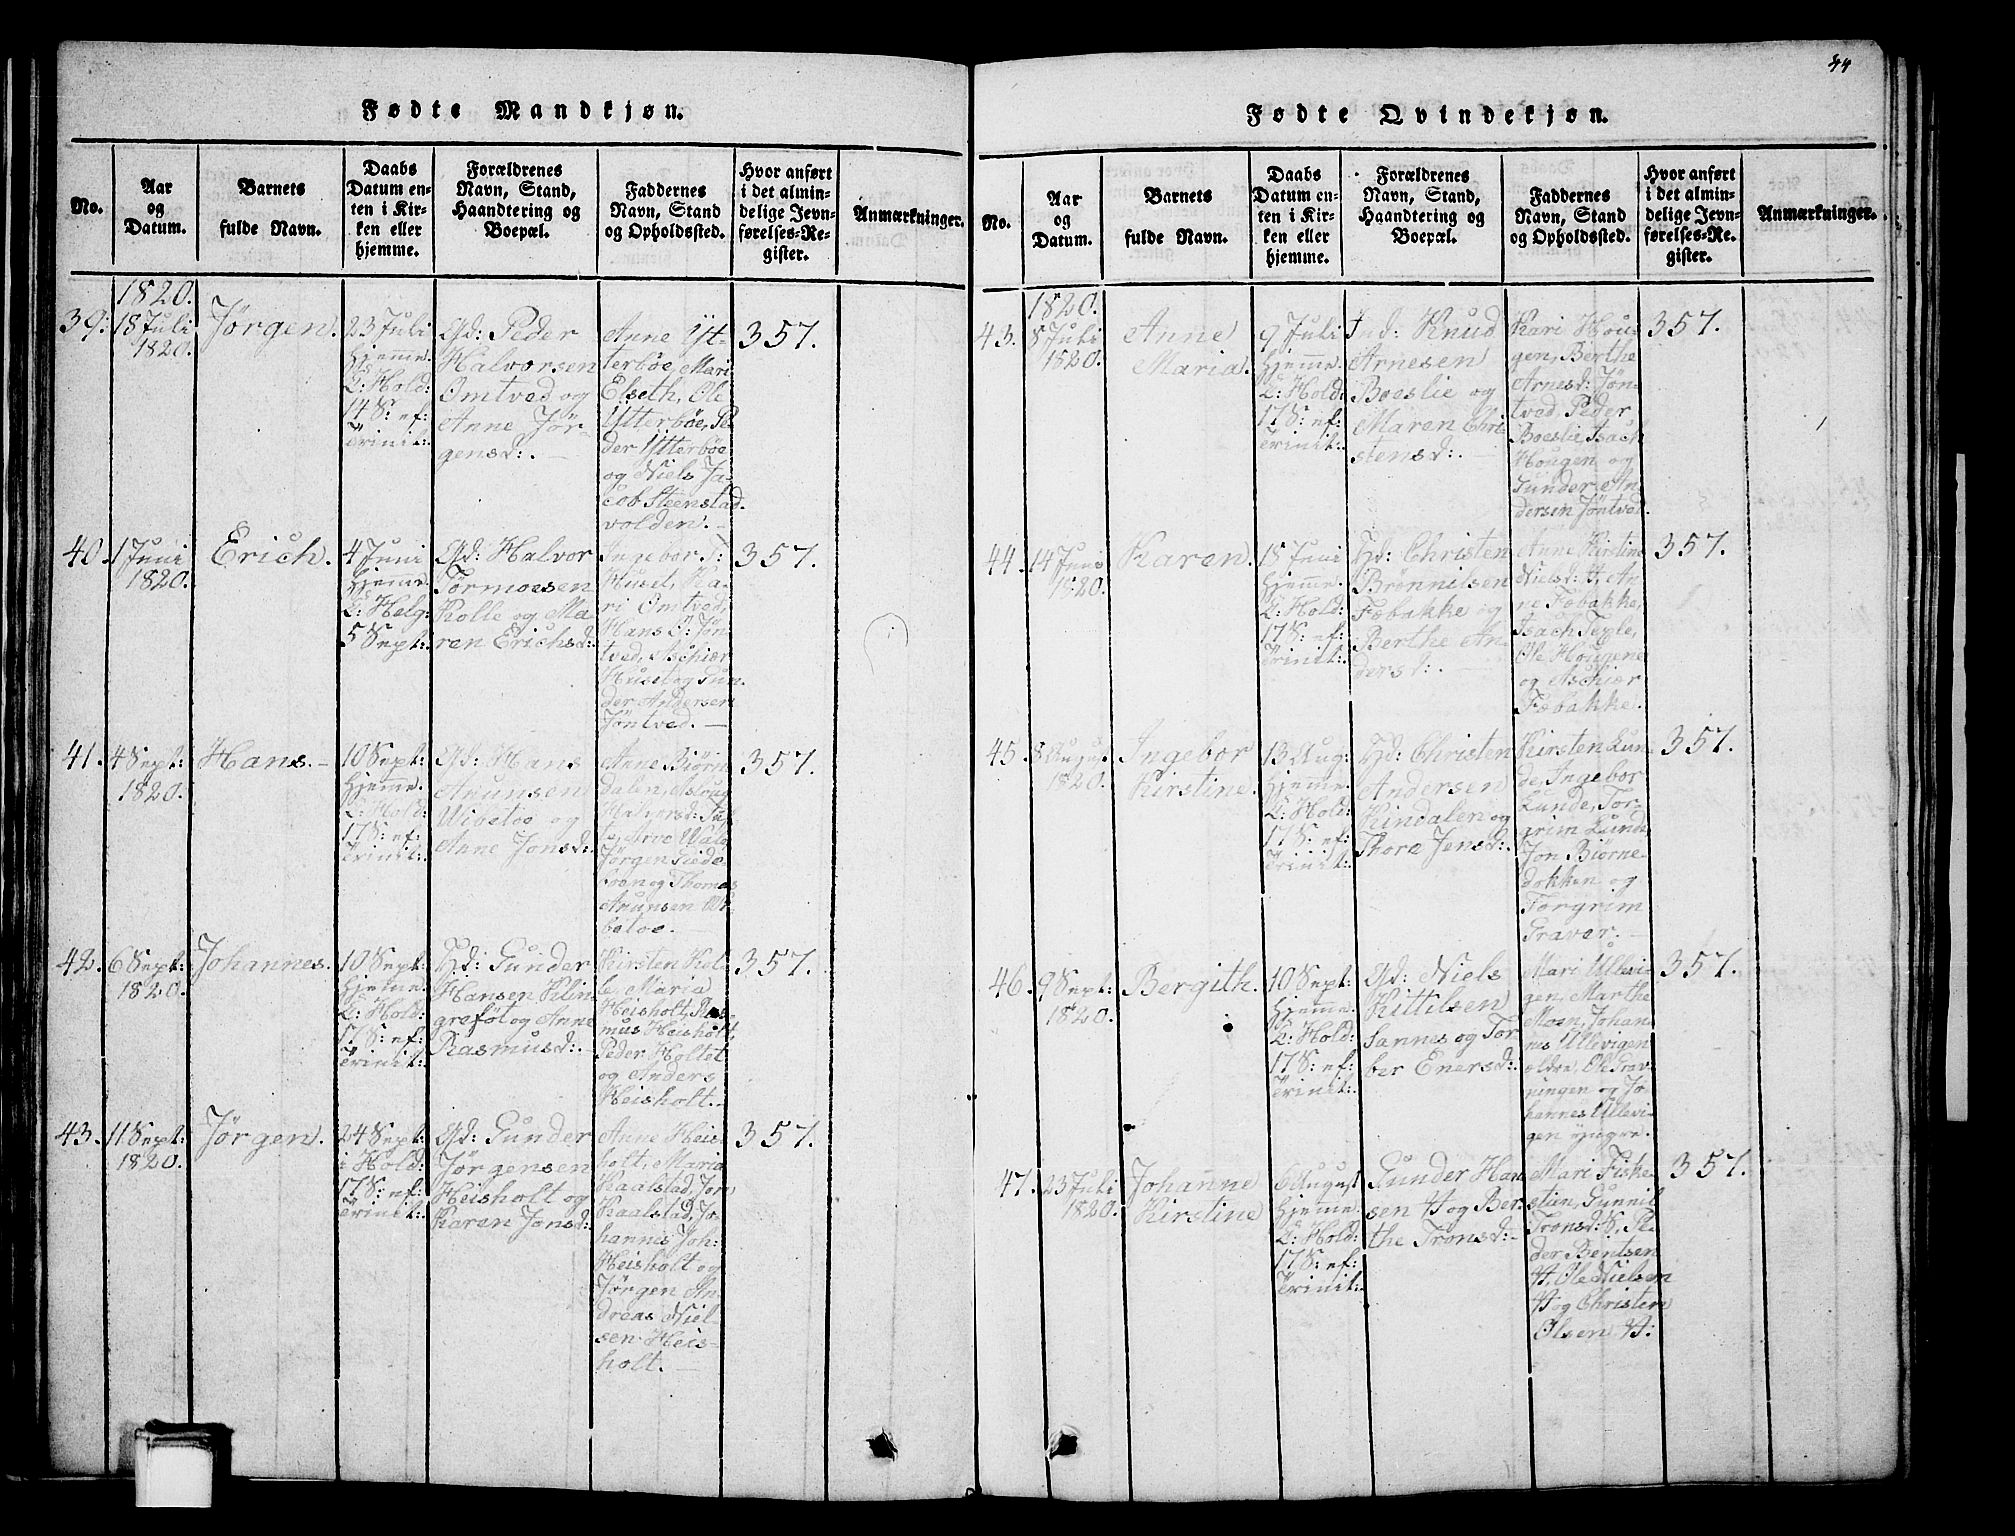 44
Fødte Mandkjøn.
No.
Aar
og
Datum.
Barnets
fulde Navn.
Daabs
Datum en-
ten i Kir-
ken eller
hjemme.
Forældrenes
Navn, Stand,
Haandtering og
Boepæl.
Faddernes
Navn, Stand
og Opholdssted.
Hvor anført
i det almin-
delige Jevn-
førelses-Re-
gister.
Anmærkninger.
1820.
39:
18 Juli
1820.
Jörgen.
23 Juli
hjemme.
C: Hold:
14 S: ef:
Trinit:
Gd: Peder
Halvorsen
Omtved og
Anne Jör-
gensd:.
Anne Yt-
terböe, Mari
Elseth, Ole
Ytterböe, Pe
der Ytterböe
og Niels Ja-
cob Steenstad
volden.
357.
40.
1 Juni
1820.
Erich.
4 Juni
hjemme.
C: Helg:
5 Sept:
Gd: Halvor
Tormoesen
Kolle og Ma
ren Erichsd:
Ingebor J:
Husel, Ka-
ri Omtved,
Hans J: Jön
tved, Aschier
Husel og Gun
der Andersen
Jöntved.
357.
41.
4 Sept:
1820.
Hans.
10 Sept:
hjemme.
C: Hold:
17 S: ef:
Trinit:.
Gd: Hans
Amunsen
Wibetoe og
Anne Jonsd:
Anne Biörn
dalen, Asloug
Halvorsd:
Jörgen
og Thomas
Amunsen Wi
betoe.
357.
42.
6 Sept:
1820.
Johannes.
10 Sept:
hjemme.
C: Hold:
17 S: ef:
Trinit:
Hd: Gunder
Hansen Klin
grefot og Anne
Rasmusd:.
Kirsten Kol
le, Maria
Heisholt, Ras
mus Heisholt,
Peder Holtet
og Anders
Heisholt.
357.
43.
11 Sept:
1820.
Jörgen.
24 Sept:
i Hold:
17 S: ef:
Trinit:
Gd: Gunder
Jörgensen
Heisholt og
Karen Jonsd:
Anne Heis
holt, Maria
Kaalstad, Jon
Kaalstad, Jo
hannes Joh:
Heisholt og
Jörgen An
dreas Niel-
sen Heis-
holt.
357.
Fødte Qvindekjøn.
No.
Aar
og
Datum.
Barnets
fulde Navn.
Daabs
Datum en-
ten i Kir-
ken eller
hjemme.
Forældrenes
Navn, Stand,
Haandtering og
Boepæl.
Faddernes
Navn, Stand
og Opholdssted.
Hvor anført
i det almin-
delige Jevn-
førelses-Re-
gister.
Anmærkninger.
1820.
43.
8 Juli
1820.
Anne
Maria.
9 Juli
hjemme.
C: Hold:
17 S: ef:
Trinit:
Ind: Knud
Arnesen
Boeslie og
Maren Chri
stensd:.
Kari Hou-
gen, Berthe
Arnesd: Jön-
tved, Peder
Boeslie, Isach
Hougen og
Gunder An
dersen Jöntved.
357.
44.
14 Juni
1820.
Karen.
18 Juni
hjemme.
C: Hold:
17 S: ef:
Trinit:
Hd: Christen
Brönnilsen
Fæbakke og
Berthe An
dersd:.
Anne Kirstine
Nielsd: H, An
ne Fæbakke,
Isach Teple,
Ole Hougene
og Aschier
Fæbakke.
357.
45.
8 August
1820.
Ingebor
Kirstine.
13 Aug:
hjemme.
C: Hold:
17 S: ef:
Trinit:
Hd: Christen
Andersen
Kindalen og
Thore Jensd:.
Kirsten Lun
de, Ingebor
Lunde, Tor-
grim Lunde
Jon Biörne-
dokken og
Torgrim
Graver.
357.
46.
9 Sept:
1820.
Bergith.
10 Sept:
hjemme.
C: Hold:
17 S: ef:
Trinit:
Gd: Niels
Kittilsen
Sannes og Tor
ber Enersd:.
Mari Ullevi-
gen, Marthe
Moen, Johan
nes Ullevigen
ældre, Ole Grav
ningen og Jo
hannes Ullevi-
gen yngre.
357.
47.
23 Juli
1820.
Johanne
Kirstine
6 August
hjemme.
C: Hold:
17 S: ef:
Trinit:
Gunder Han
sen H og Ber
the Tronsd:
Mari Fiske-
stien, Gunnil
Tronsd: H, Pe-
der Bentsen
H, Ole Nielsen
H og Christen
Olsen H:
357.